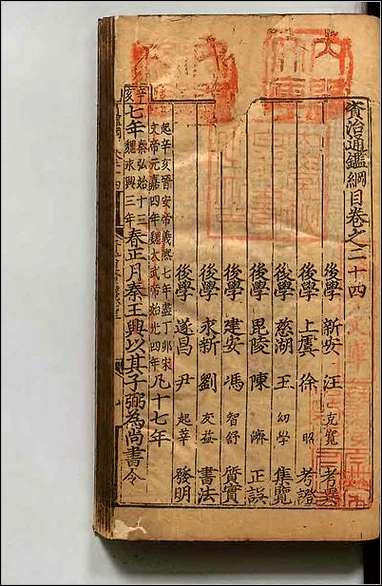 資治通鑑綱目卷之二十四
後學 新安 汪 克寬 考異
後學 上虞 徐 昭 考證
後學 慈湖 王 幼學 集覽
後學 毘陵 陳 濟 正誤
後學 建安 馮 智舒 質實
後學 永新 劉 友益 書法
後學 遂昌 尹 起莘 發明
起辛亥晉安帝義熙七年盡丁卯宋
文帝元嘉四年魏太武帝始光四年凡十七年
辛亥
七年
秦弘始十三
魏永興三年
春正月秦王興以其子弼為尚書令
文庫